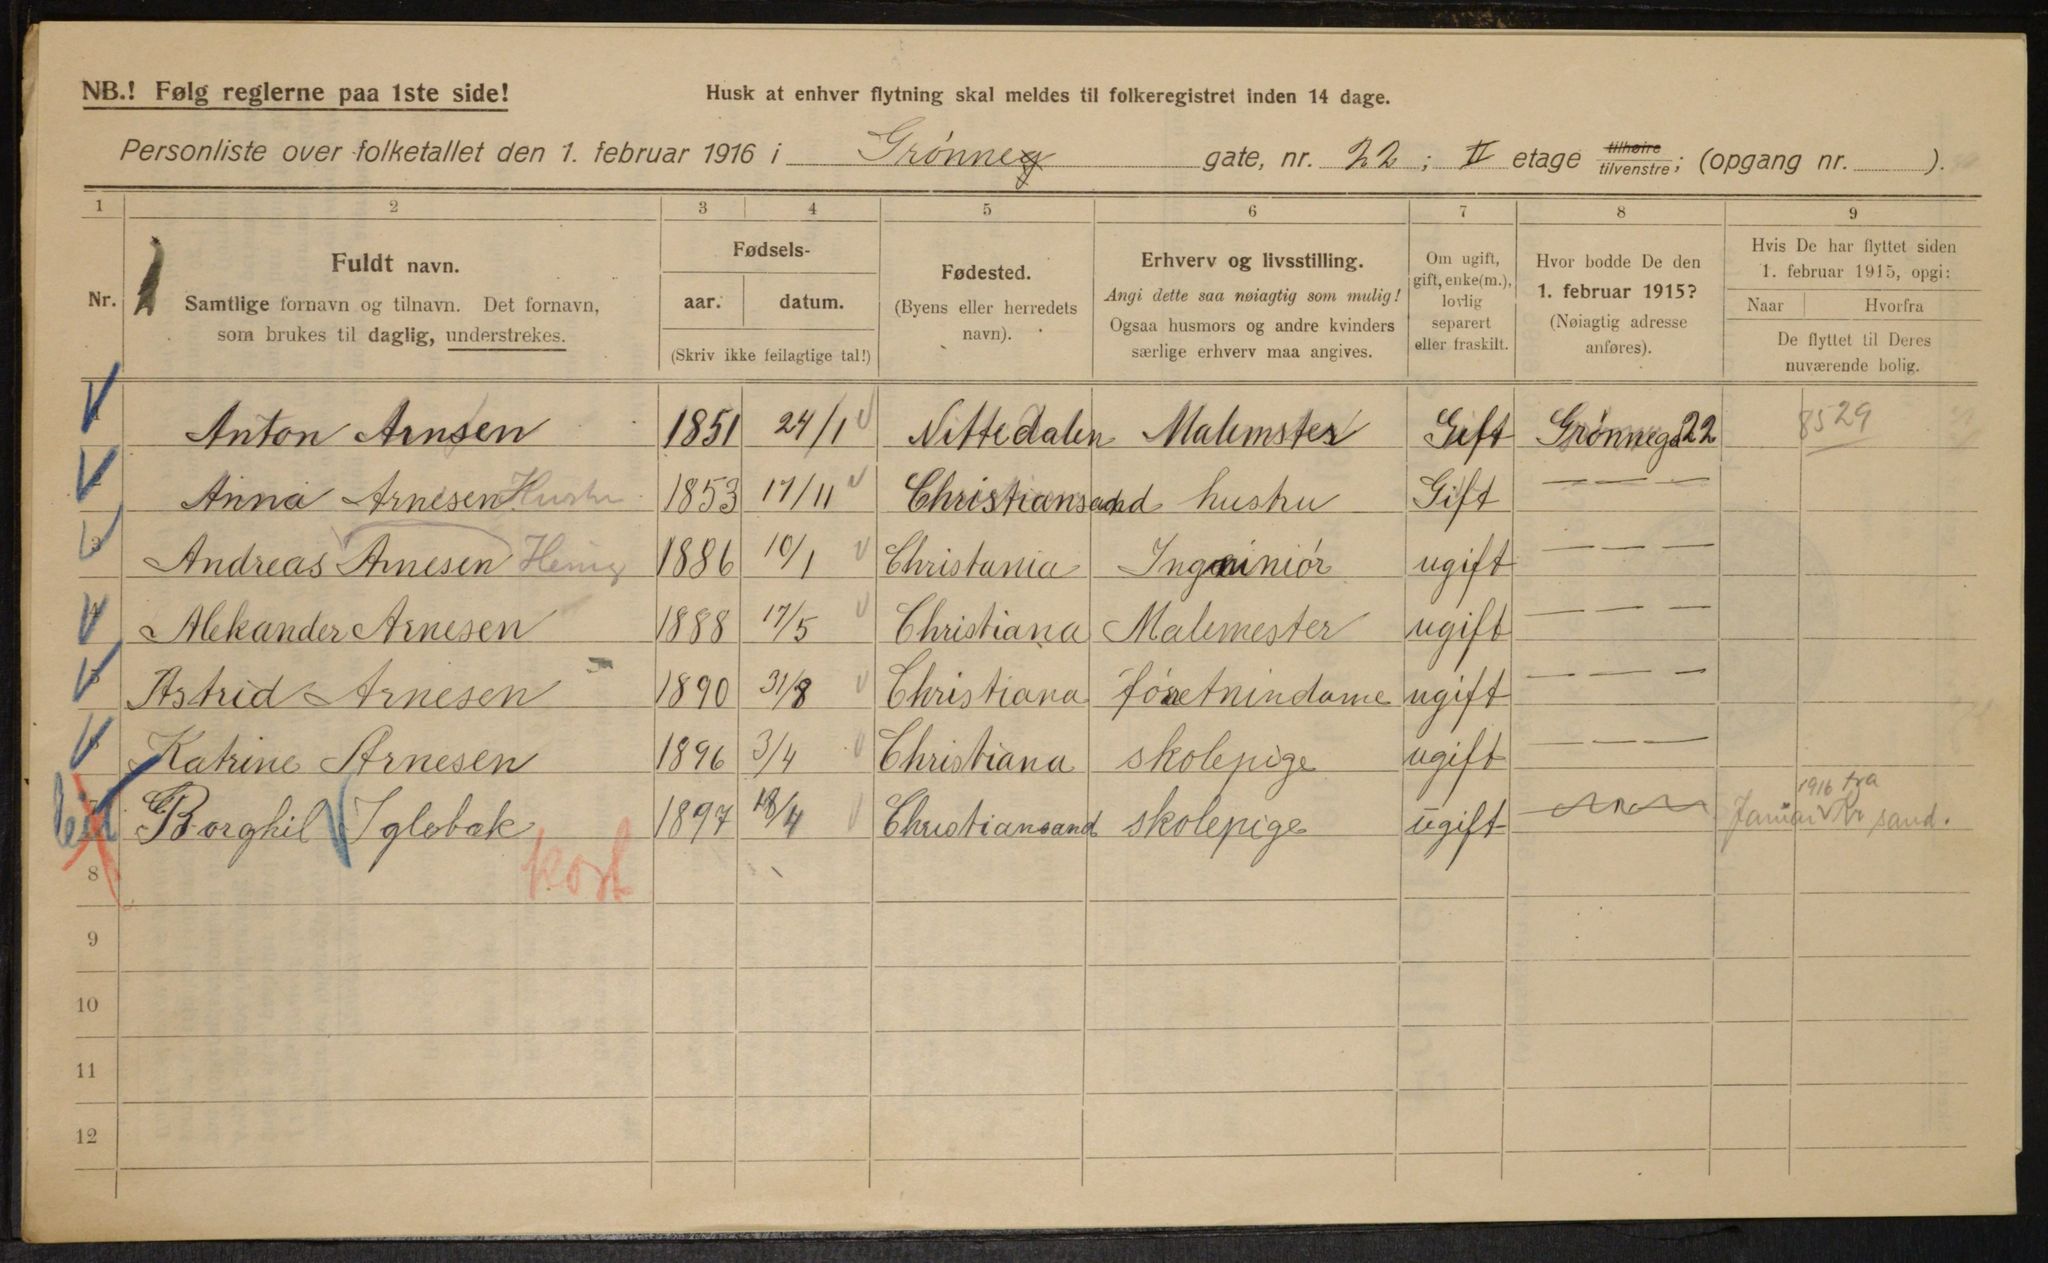 NB.! Følg reglerne paa 1ste side!
Husk at enhver flytning skal meldes til folkeregistret inden 14 dage.
Personliste over folketallet den 1. februar 1916 i Grønneg gate, nr. 22; II etage tilhøire tilvenstre; (opgang nr. ).
1 2 3 4 5 6 7 8 9
Nr.
Fuldt navn.
Samtlige fornavn og tilnavn. Det fornavn,
som brukes til daglig, understrekes.
Fødsels-
aar. datum.
(Skriv ikke feilagtige tal!)
Fødested.
(Byens eller herredets
navn).
Erhverv og livsstilling.
Angi dette saa nøiagtig som mulig!
Ogsaa husmors og andre kvinders
særlige erhverv maa angives.
Om ugift,
gift, enke(m.),
lovlig
separert
eller fraskilt.
Hvor bodde De den
1. februar 1915?
(Nøiagtig adresse
anføres).
Hvis De har flyttet siden
1. februar 1915, opgi:
Naar Hvorfra
De flyttet til Deres
nuværende bolig.
Anton Arnsen 1851 24/1 Nittedalen Malemster Gift Grønneg 22 8529
Anna Arnesen Hustru 1853 17/11 Christiansand hustru Gift — — —
3 Andreas Arnesen Henig 1886 10/1 Christania Ingeiniør ugift — — —
4 Alekander Arnesen 1888 17/5 Christiana Malemester ugift — — —
5 Astrid Arnesen 1890 31/8 Christiana føretnindame ugift — — —
Katrine Arnesen 1896 3/4 Christiana skolepige ugift — — —
1916 fra
7 Borghil Iglebak 1897 18/4 Christiansand skolepige ugift Januar Kr sand.
kost
8
9
10
11
12